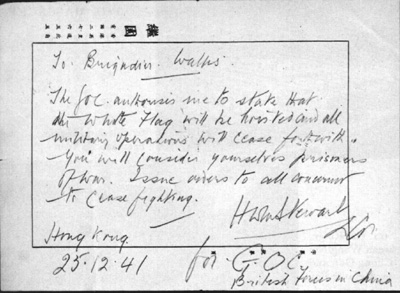 To. Brigadier. Wallis.
The GOC. authorises me to state that
the White Flag will be hoisted and all
military operations will cease forthwith.
You will consider yourselves prisoners
of war. Issue orders to all concerned
to cease fighting.
Hong Kong.
25.12.41
for. G.O.C
British Forces in China